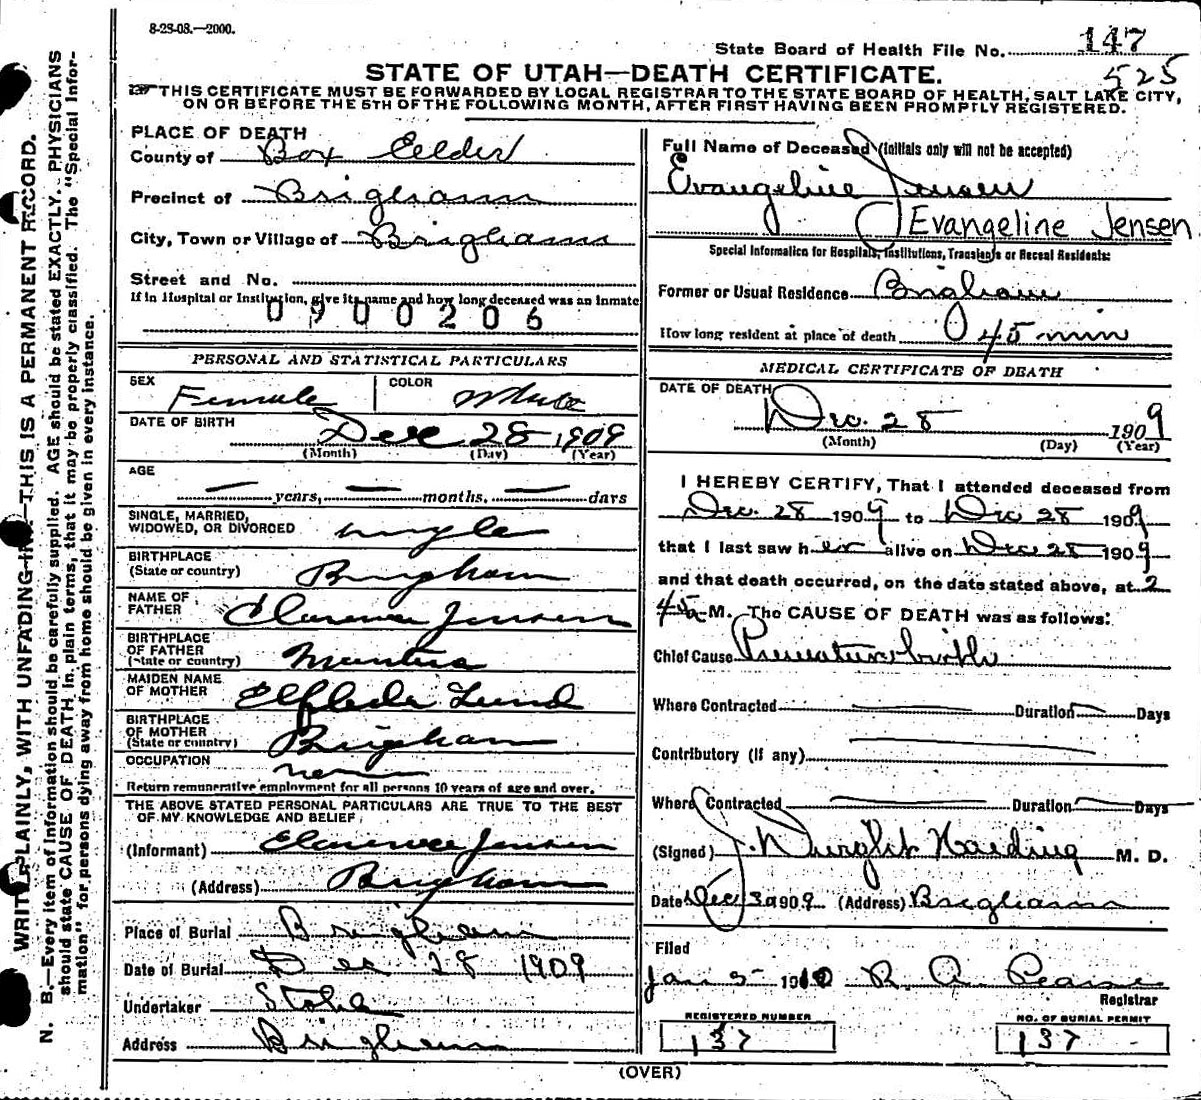 8-28-08.—2000.
State Board of Health File No. 147
525
STATE OF UTAH—DEATH CERTIFICATE.
THIS CERTIFICATE MUST BE FORWARDED BY LOCAL REGISTRAR TO THE STATE BOARD OF HEALTH, SALT LAKE CITY,
ON OR BEFORE THE 5TH OF THE FOLLOWING MONTH, AFTER FIRST HAVING BEEN PROMPTLY REGISTERED.
WRITE PLAINLY, WITH UNFADING INK—THIS IS A PERMANENT RECORD.
N. B.—Every item of information should be carefully supplied. AGE should be stated EXACTLY. PHYSICIANS
should state CAUSE OF DEATH in plain terms, that it may be properly classified. The "Special Infor-
mation" for persons dying away from home should be given in every instance.
PLACE OF DEATH
County of Box Elder
Precinct of Brigham
City, Town or Village of Brigham
Street and No.
If in Hospital or Institution, give its name and how long deceased was an inmate
0900206
PERSONAL AND STATISTICAL PARTICULARS
SEX Female COLOR White
DATE OF BIRTH
Dec 28 1909
(Month) (Day) (Year)
AGE
— years, — months, — days
SINGLE, MARRIED,
WIDOWED, OR DIVORCED single
BIRTHPLACE
(State or country) Brigham
NAME OF
FATHER Clarence Jensen
BIRTHPLACE
OF FATHER
(State or country) Mantua
MAIDEN NAME
OF MOTHER Elfleda Lund
BIRTHPLACE
OF MOTHER
(State or country) Brigham
OCCUPATION
Return remunerative employment for all persons 10 years of age and over.
THE ABOVE STATED PERSONAL PARTICULARS ARE TRUE TO THE BEST
OF MY KNOWLEDGE AND BELIEF
(Informant) Clarence Jensen
(Address) Brigham
Place of Burial Brigham
Date of Burial Dec 28 1909
Undertaker
Address Brigham
Full Name of Deceased (Initials only will not be accepted)
Evangeline Jensen
Evangeline Jensen
Special Information for Hospitals, Institutions, Transients or Recent Residents:
Former or Usual Residence Brigham
How long resident at place of death 45 min
MEDICAL CERTIFICATE OF DEATH
DATE OF DEATH
Dec. 28 1909
(Month) (Day) (Year)
I HEREBY CERTIFY, That I attended deceased from
Dec. 28 1909 to Dec 28 1909
that I last saw her alive on Dec 28 1909
and that death occurred, on the date stated above, at 2
45 a M. The CAUSE OF DEATH was as follows:
Chief Cause Premature birth
Where Contracted — Duration — Days
Contributory (if any)
Where Contracted — Duration — Days
(Signed) J. Dwight Harding M. D.
Date Dec 30 1909 (Address) Brigham
Filed
Jan 5 1910 R. A. Pearse
Registrar
REGISTERED NUMBER
137
NO. OF BURIAL PERMIT
137
(OVER)